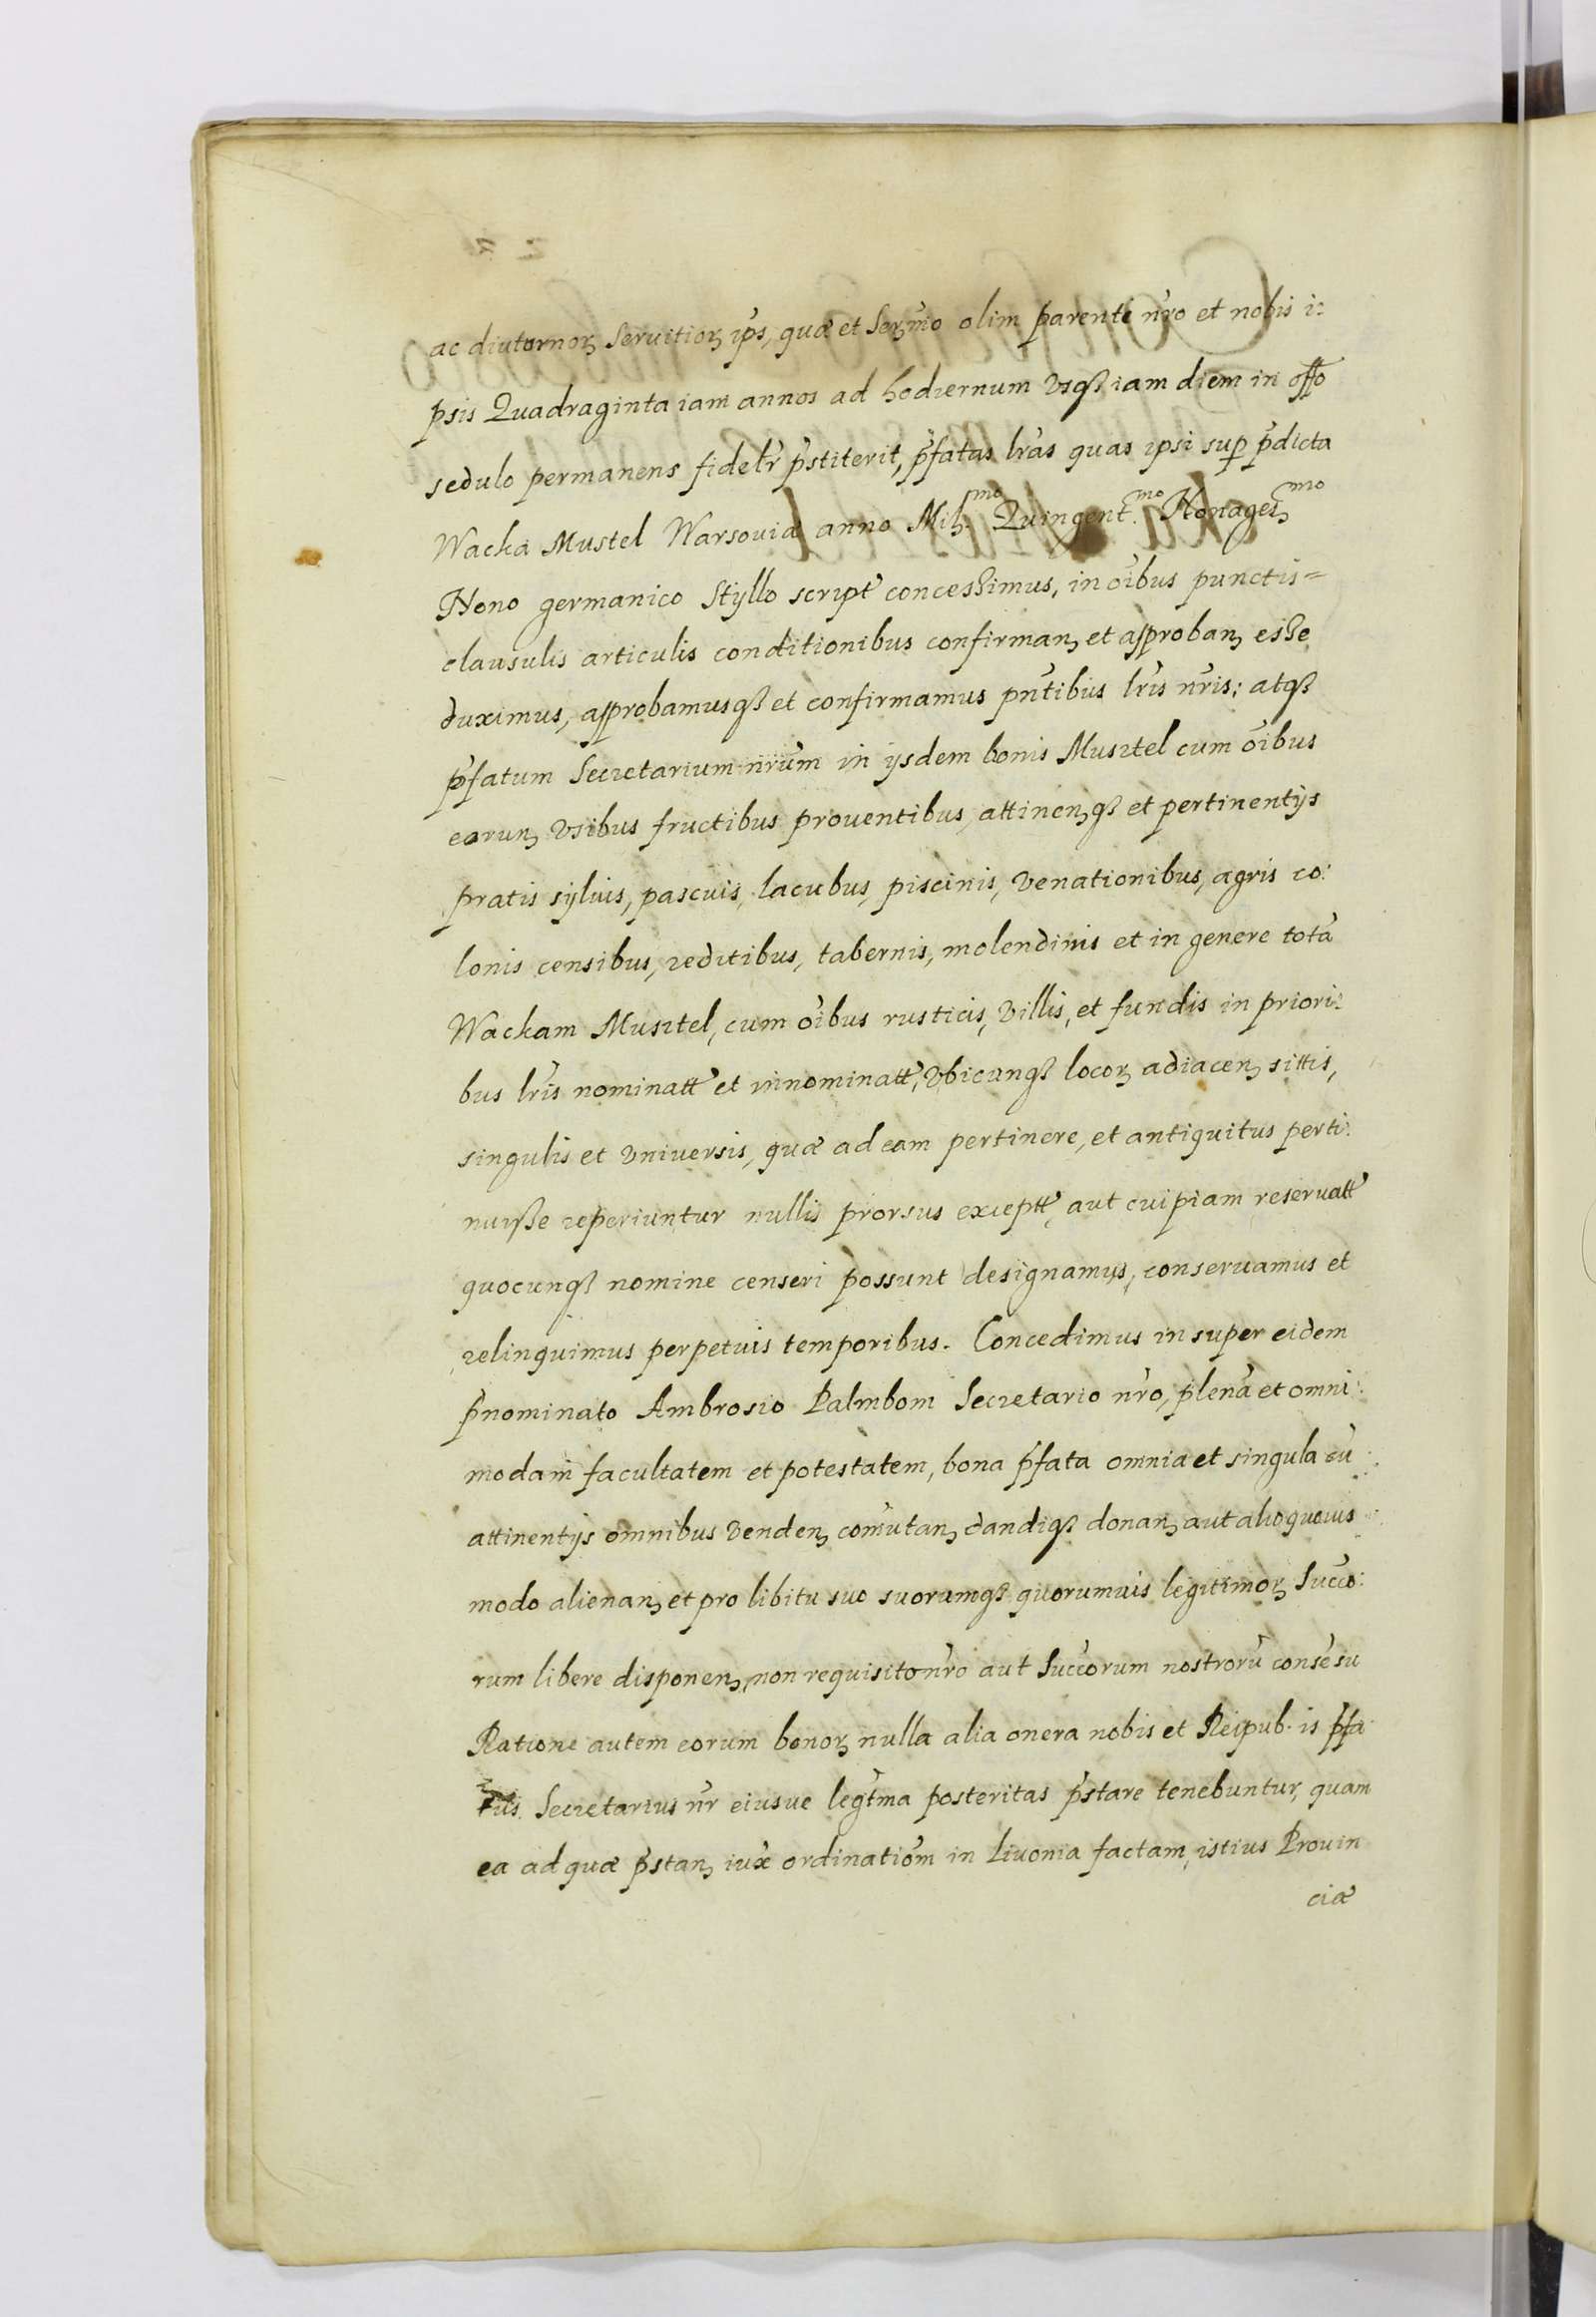 ac diuturnoꝝ Seruitioꝝ ip̃s, quæ et Serm̃o olim parenti nr̃o et nobis i:
psis Quadraginta iam annos ad hodiernum Vsqꝫ iam diem in offo
sedulo permanens fidelr̃ p̃stiterit, p̃fatas lr̃as quas ipsi sup̱ p̃dicta
Wacka Mustel Warsouiæ anno Milꝫ.mo Quingent.mo Nonagesmo
Nono germanico Styllo script̃ concessimus, in oĩbus punctis=
clausulis articulis conditionibus confirmanꝫ et approbanꝫ esse
duximus, approbamusqꝫ et confirmamus pñtibus lr̃is nr̃is: atqꝫ
p̃fatum Secretarium nrũm in ijsdem bonis Mustel cum oĩbus
earunꝫ Vsibus fructibus prouentibus, attinenꝫqꝫ et pertinentijs
pratis syluis, pascuis, lacubus, piscinis, Venationibus, agris co:
lonis censibus, reditibus, tabernis, molendinis et in genere totã
Wackam Mustel, cum oĩbus rusticis, Villis, et fundis in priori:
bus lr̃is nominatt̃ et innominatt̃, Vbicunqꝫ locoꝝ adiacenꝫ sittis,
singulis et Vniuersis, quæ ad eam pertinere, et antiquitus perti:
nuisse reperiuntur nullis prorsus exceptt̃, aut cuipiam reseruatt̃
quocunqꝫ nomine censeri possunt designamus, conseruamus et
relinquimus perpetuis temporibus. Concedimus in super eidem
p̃nominato Ambrosio Palmbom Secretario nr̃o, plenã et omni:
modam facultatem et potestatem, bona p̃fata omnia et singula cũ
attinentijs omnibus Vendenꝫ com̃utanꝫ dandiqꝫ donanꝫ aut alio quouis
modo alienanꝫ et pro libitu suo suorumqꝫ quorumuis legitimoꝝ Succo:
rum libere disponenꝫ, non requisito nr̃o aut Succorum nostrorũ consẽsu
Ratione autem eorum bonoꝝ nulla alia onera nobis et Reipub. is p̃fa
tus Secretarius nr̃ eiusue legt̃ma posteritas p̃stare tenebuntur, quam
ea ad quæ p̃stanꝫ iux̃ ordinatiõm in Liuonia factam, istius Prouin
ciæ